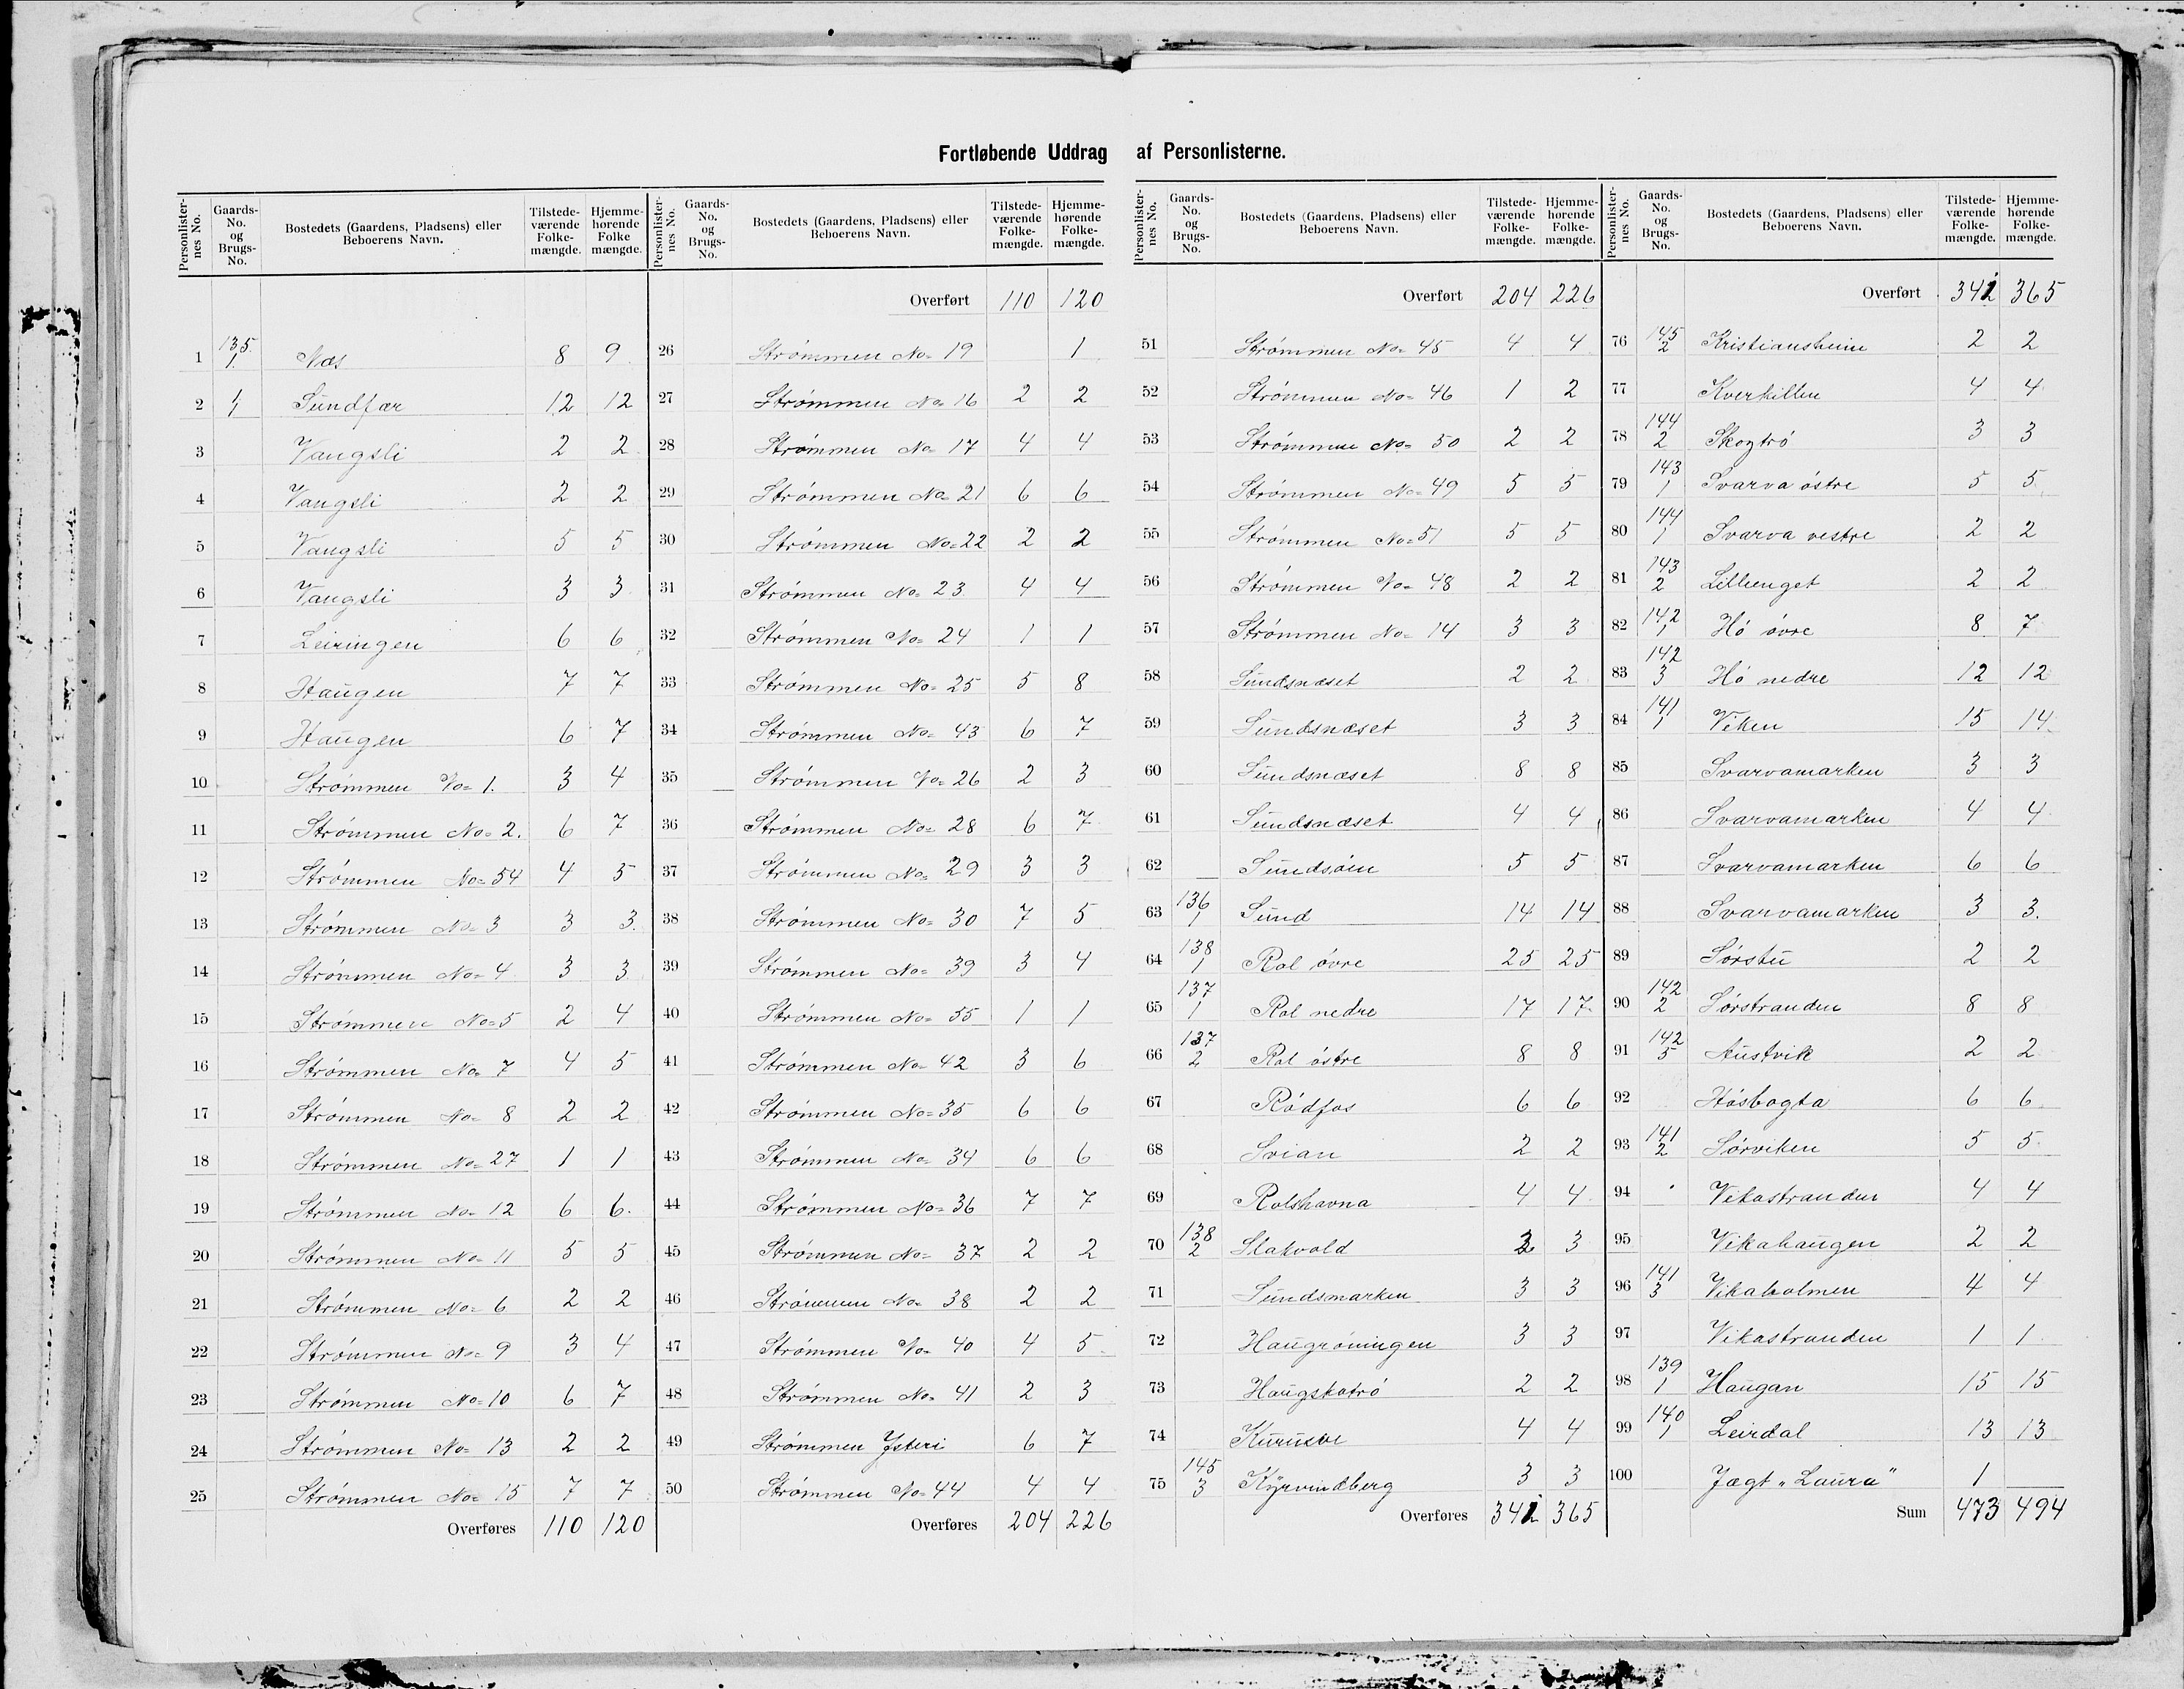 Fortløbende Uddrag af Personlisterne.
Personlisternes No. Gaards-No. og Brugs-No. Bostedets (Gaardens, Pladsens) eller Beboerens Navn. Tilstedeværende Folkemængde. Hjemmehørende Folkemængde.
1 135/1 Næs 8 9
2 1/1 Sundfær 12 12
3 Vangsli 2 2
4 Vangsli 2 2
5 Vangsli 5 5
6 Vangsli 3 3
7 Leiringen 6 6
8 Haugen 7 7
9 Haugen 6 7
10 Strømmen No= 1. 3 4
11 Strømmen No= 2. 6 7
12 Strømmen No= 54 4 5
13 Strømmen No= 3 3 3.
14 Strømmen No= 4 3 3
15 Strømmen No= 5 2 4
16 Strømmen No= 7 4 5
17 Strømmen No= 8 2 2
18 Strømmen No= 27 1 1
19 Strømmen No= 12 6 6.
20 Strømmen No= 11 5 5
21 Strømmen No= 6 2 2
22 Strømmen No= 9 3 4
23 Strømmen No= 10 6 7
24 Strømmen No= 13 2 2
25 Strømmen No= 15 7 7
Overføres 110 120
Personlisternes No. Gaards-No. og Brugs-No. Bostedets (Gaardens, Pladsens) eller Beboerens Navn. Tilstedeværende Folkemængde. Hjemmehørende Folkemængde.
Overført 110 120
26 Strømmen No= 19 1
27 Strømmen No= 16 2 2
28 Strømmen No= 17 4 4
29 Strømmen No= 21 6 6
30 Strømmen No= 22 2 2
31 Strømmen No= 23 4 4
32 Strømmen No= 24 1 1
33 Strømmen No= 25 5 8
34 Strømmen No= 43 6 7
35 Strømmen No= 26 2 3
36 Strømmen No= 28 6 7
37 Strømmen No= 29 3 3
38 Strømmen No= 30 7 5
39 Strømmen No= 39 3 4
40 Strømmen No= 55 1 1
41 Strømmen No= 42 3 6
42 Strømmen No= 35 6 6
43 Strømmen No= 34 6 6
44 Strømmen No= 36 7 7
45 Strømmen No= 37 2 2
46 Strømmen No= 38 2 2
47 Strømmen No= 40 4 5
48 Strømmen No= 41 2 3
49 Strømmen Ysteri 6 7
50 Strømmen No= 44 4 4
Overføres 204 226
Personlisternes No. Gaards-No. og Brugs-No. Bostedets (Gaardens, Pladsens) eller Beboerens Navn. Tilstedeværende Folkemængde. Hjemmehørende Folkemængde.
Overført 204 226
51 Strømmen No= 45 4 4
52 Strømmen No= 46 1 2
53 Strømmen No= 50 2 2
54 Strømmen No= 49 5 5
55 Strømmen No= 51 5 5
56 Strømmen No= 48 2 2
57 Strømmen No= 14 3 3
58 Sundsnæset 2 2
59 Sundsnæset 3 3
60 Sundsnæset 8 8
61 Sundsnæset 4 4
62 Sundsøien 5 5
63 136/1 Sund 14 14
64 138/1 Rol øvre 25 25
65 137/1 Rol nedre 17 17
66 137/2 Rol østre 8 8
67 Rødfos 6 6
68 Svian 2 2
69 Rolshavna 4 4
70 138/2 Slakvold 3 3
71 Sundsmarken 3 3
72 Haugrøningen 3 3
73 Haugskatrø 2 2
74 4 4
75 145/3 Kyrvindberg 3 3
Overføres 341 365
Personlisternes No. Gaards-No. og Brugs-No. Bostedets (Gaardens, Pladsens) eller Beboerens Navn. Tilstedeværende Folkemængde. Hjemmehørende Folkemængde.
Overført 341 365
76 145/2 Kristiansheim 2 2
77 Kverkillen 4 4
78 144/2 Skogtrø 3 3
79 143/1 Svarva østre 5 5
80 144/1 Svarva vestre 2 2
81 143/2 Lillienget 2 2
82 142/1 Hø øvre 8 7
83 142/3 Hø nedre 12 12
84 141/1 Viken 15 14
85 Svarvamarken 3 3
86 Svarvamarken 4 4
87 Svarvamarken 6 6
88 Svarvamarken 3 3.
89 Sørstu 2 2
90 142/2 Sørstranden 8 8
91 142/5 Austvik 2 2
92 Høsbogta 6 6
93 141/2 Sørviken 5 5
94 Vikastranden 4 4
95 Vikahaugen 2 2
96 141/3 Vikaholmen 4 4
97 Vikastranden 1 1
98 139/1 Haugan 15 15
99 140/1 Leirdal 13 13
100 Jægt „Laura" 1
Sum 473 494